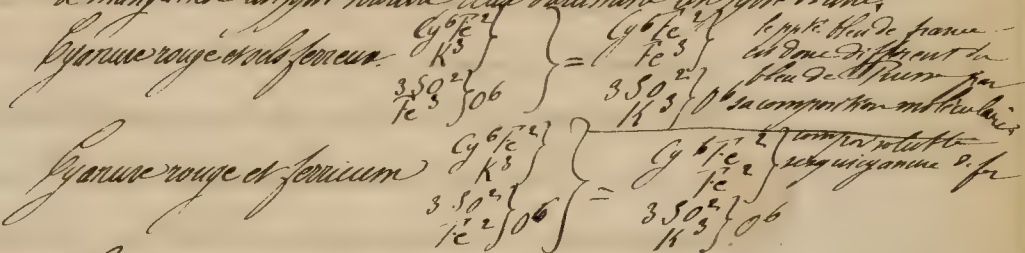 de manganèse
Cyanure rouge et sels ferreux. Cy⁶Fe² } K³ 3SO² } Fe³ O⁶ } = Cy⁶Fe² } Fe³ 3SO² } K³ O⁶
le ppté bleu de france
est donc différent du
bleu de Prusse par
sa composition moléculaire
Cyanure rouge et ferricum Cy⁶Fe² } K³ 3SO² } Fe² O⁶ } = Cy⁶Fe² } Fe² 3SO² } K³ O⁶
compos soluble
sesquicyanure de fer